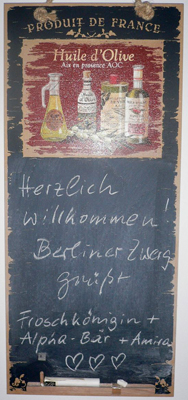 PRODUIT DE FRANCE
Huile d'Olive
Aix en provence AOC
Herzlich
willkommen!
Berliner Zwerg
grüßt
Froschkönigin +
Alpha-Bär + Amira
PRODUIT DE FRANCE